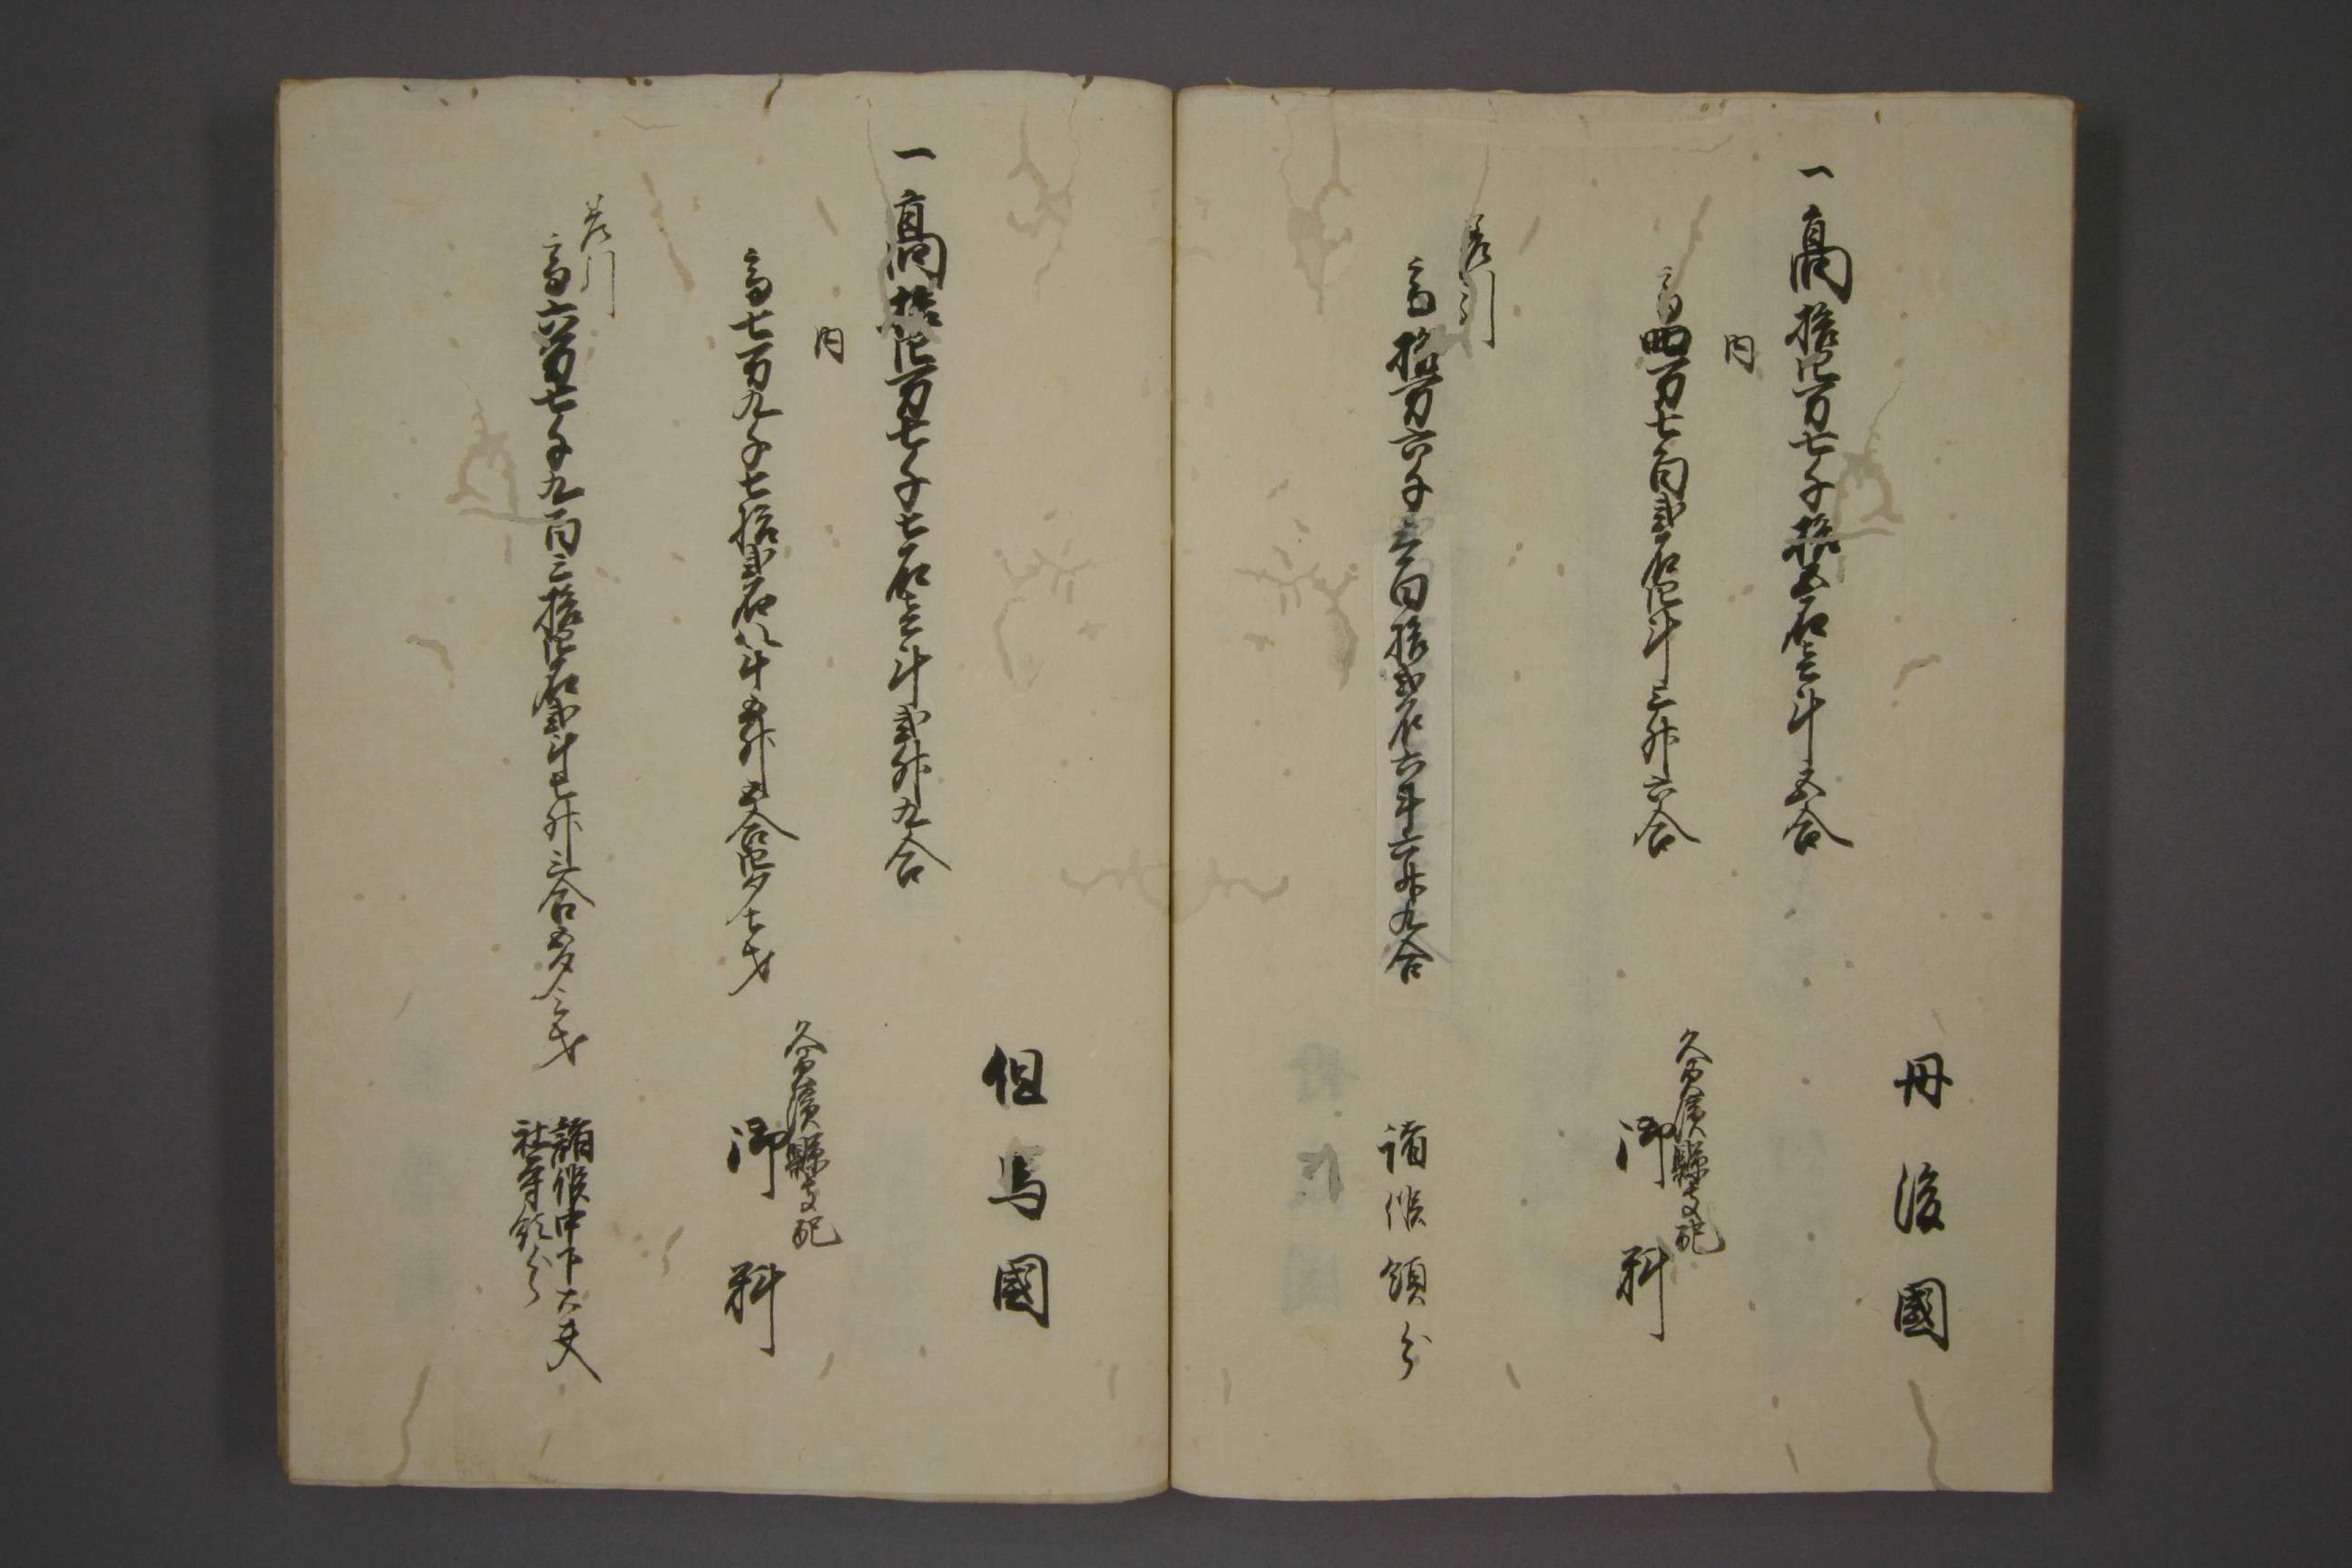 丹後國
一高拾四万七千拾五石壱斗五合
内
高四万七百弐石四斗三升六合
久美濱縣支配
御料
差引
高拾万六千三百拾弐石六斗六升九合
諸侯領分
但馬國
一高拾四万七千七石壱斗弐升九合
内
高七万九千七拾弐石八斗五升五合四夕七才
久美濱縣支配
御料
差引
高六万七千九百三拾四石弐斗七升三合五夕三才
諸侯中下大夫
社寺領分